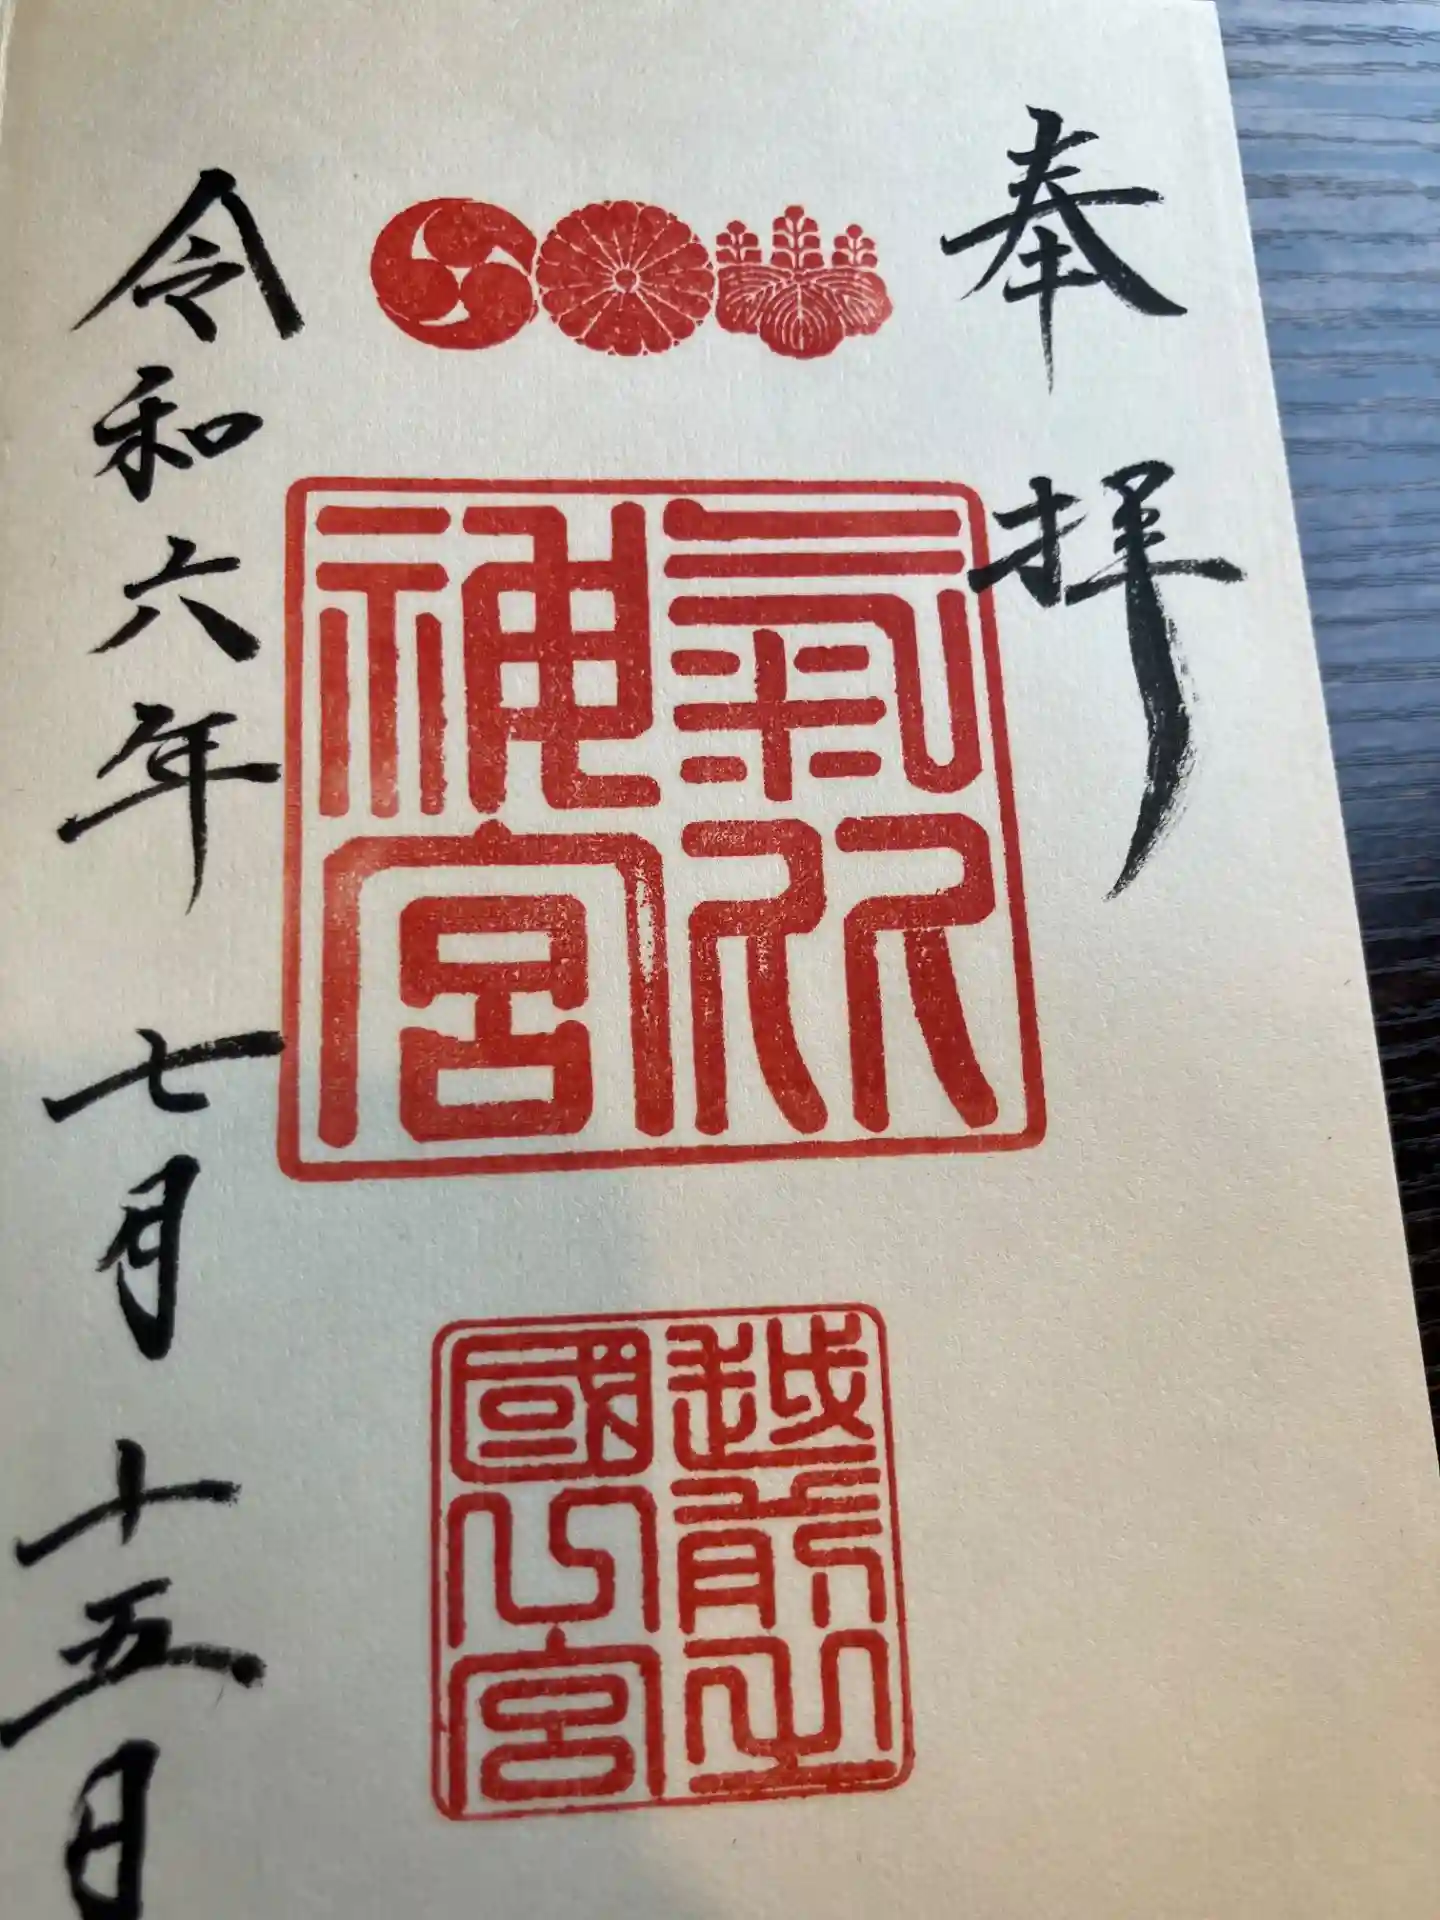 奉拝
氣比
神宮
越前之
國宮
令和六年七月十五日